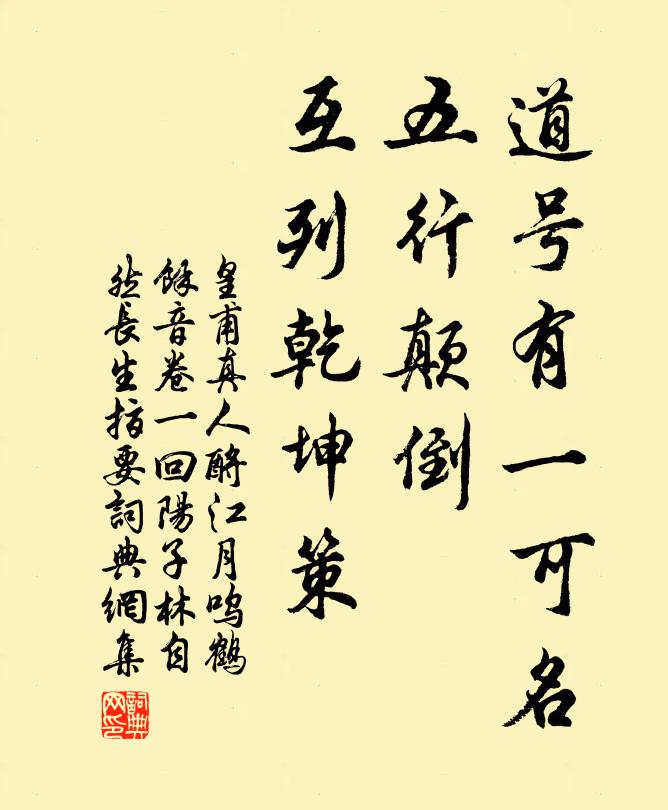 道号有一可名
五行颠倒
互列乾坤策
皇甫真人酹江月鸣鹤
餘音卷一回陽子林自
然長生指要詞典網集
詞典
网印